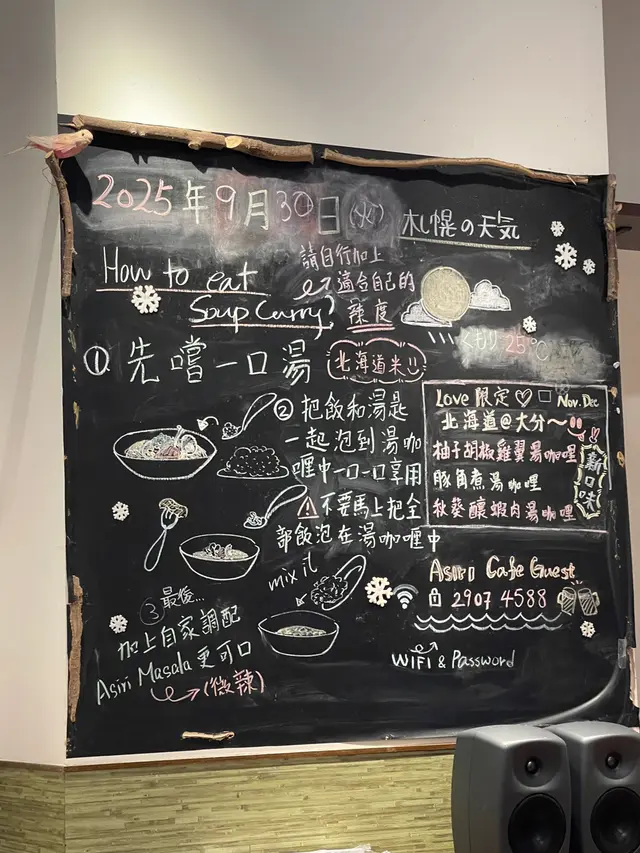 2025年9月30日(火) 札幌の天気
How to eat
Soup Curry?
請自行加上
適合自己的
辣度
くもり 25℃
① 先嚐一口湯
北海道米!!
② 把飯和湯匙
一起泡到湯咖
喱中一口一口享用
⚠不要馬上把全
部飯泡在湯咖喱中
mix it
③ 最後...
加上自家調配
Asiri Masala 更可口
(微辣)
Love 限定♡ Nov. Dec
北海道@大分~!!
柚子胡椒雞翼湯咖喱
豚角煮湯咖喱
秋葵釀蝦肉湯咖喱
新口味
Asiri Cafe Guest
2907 4588
WiFi & Password